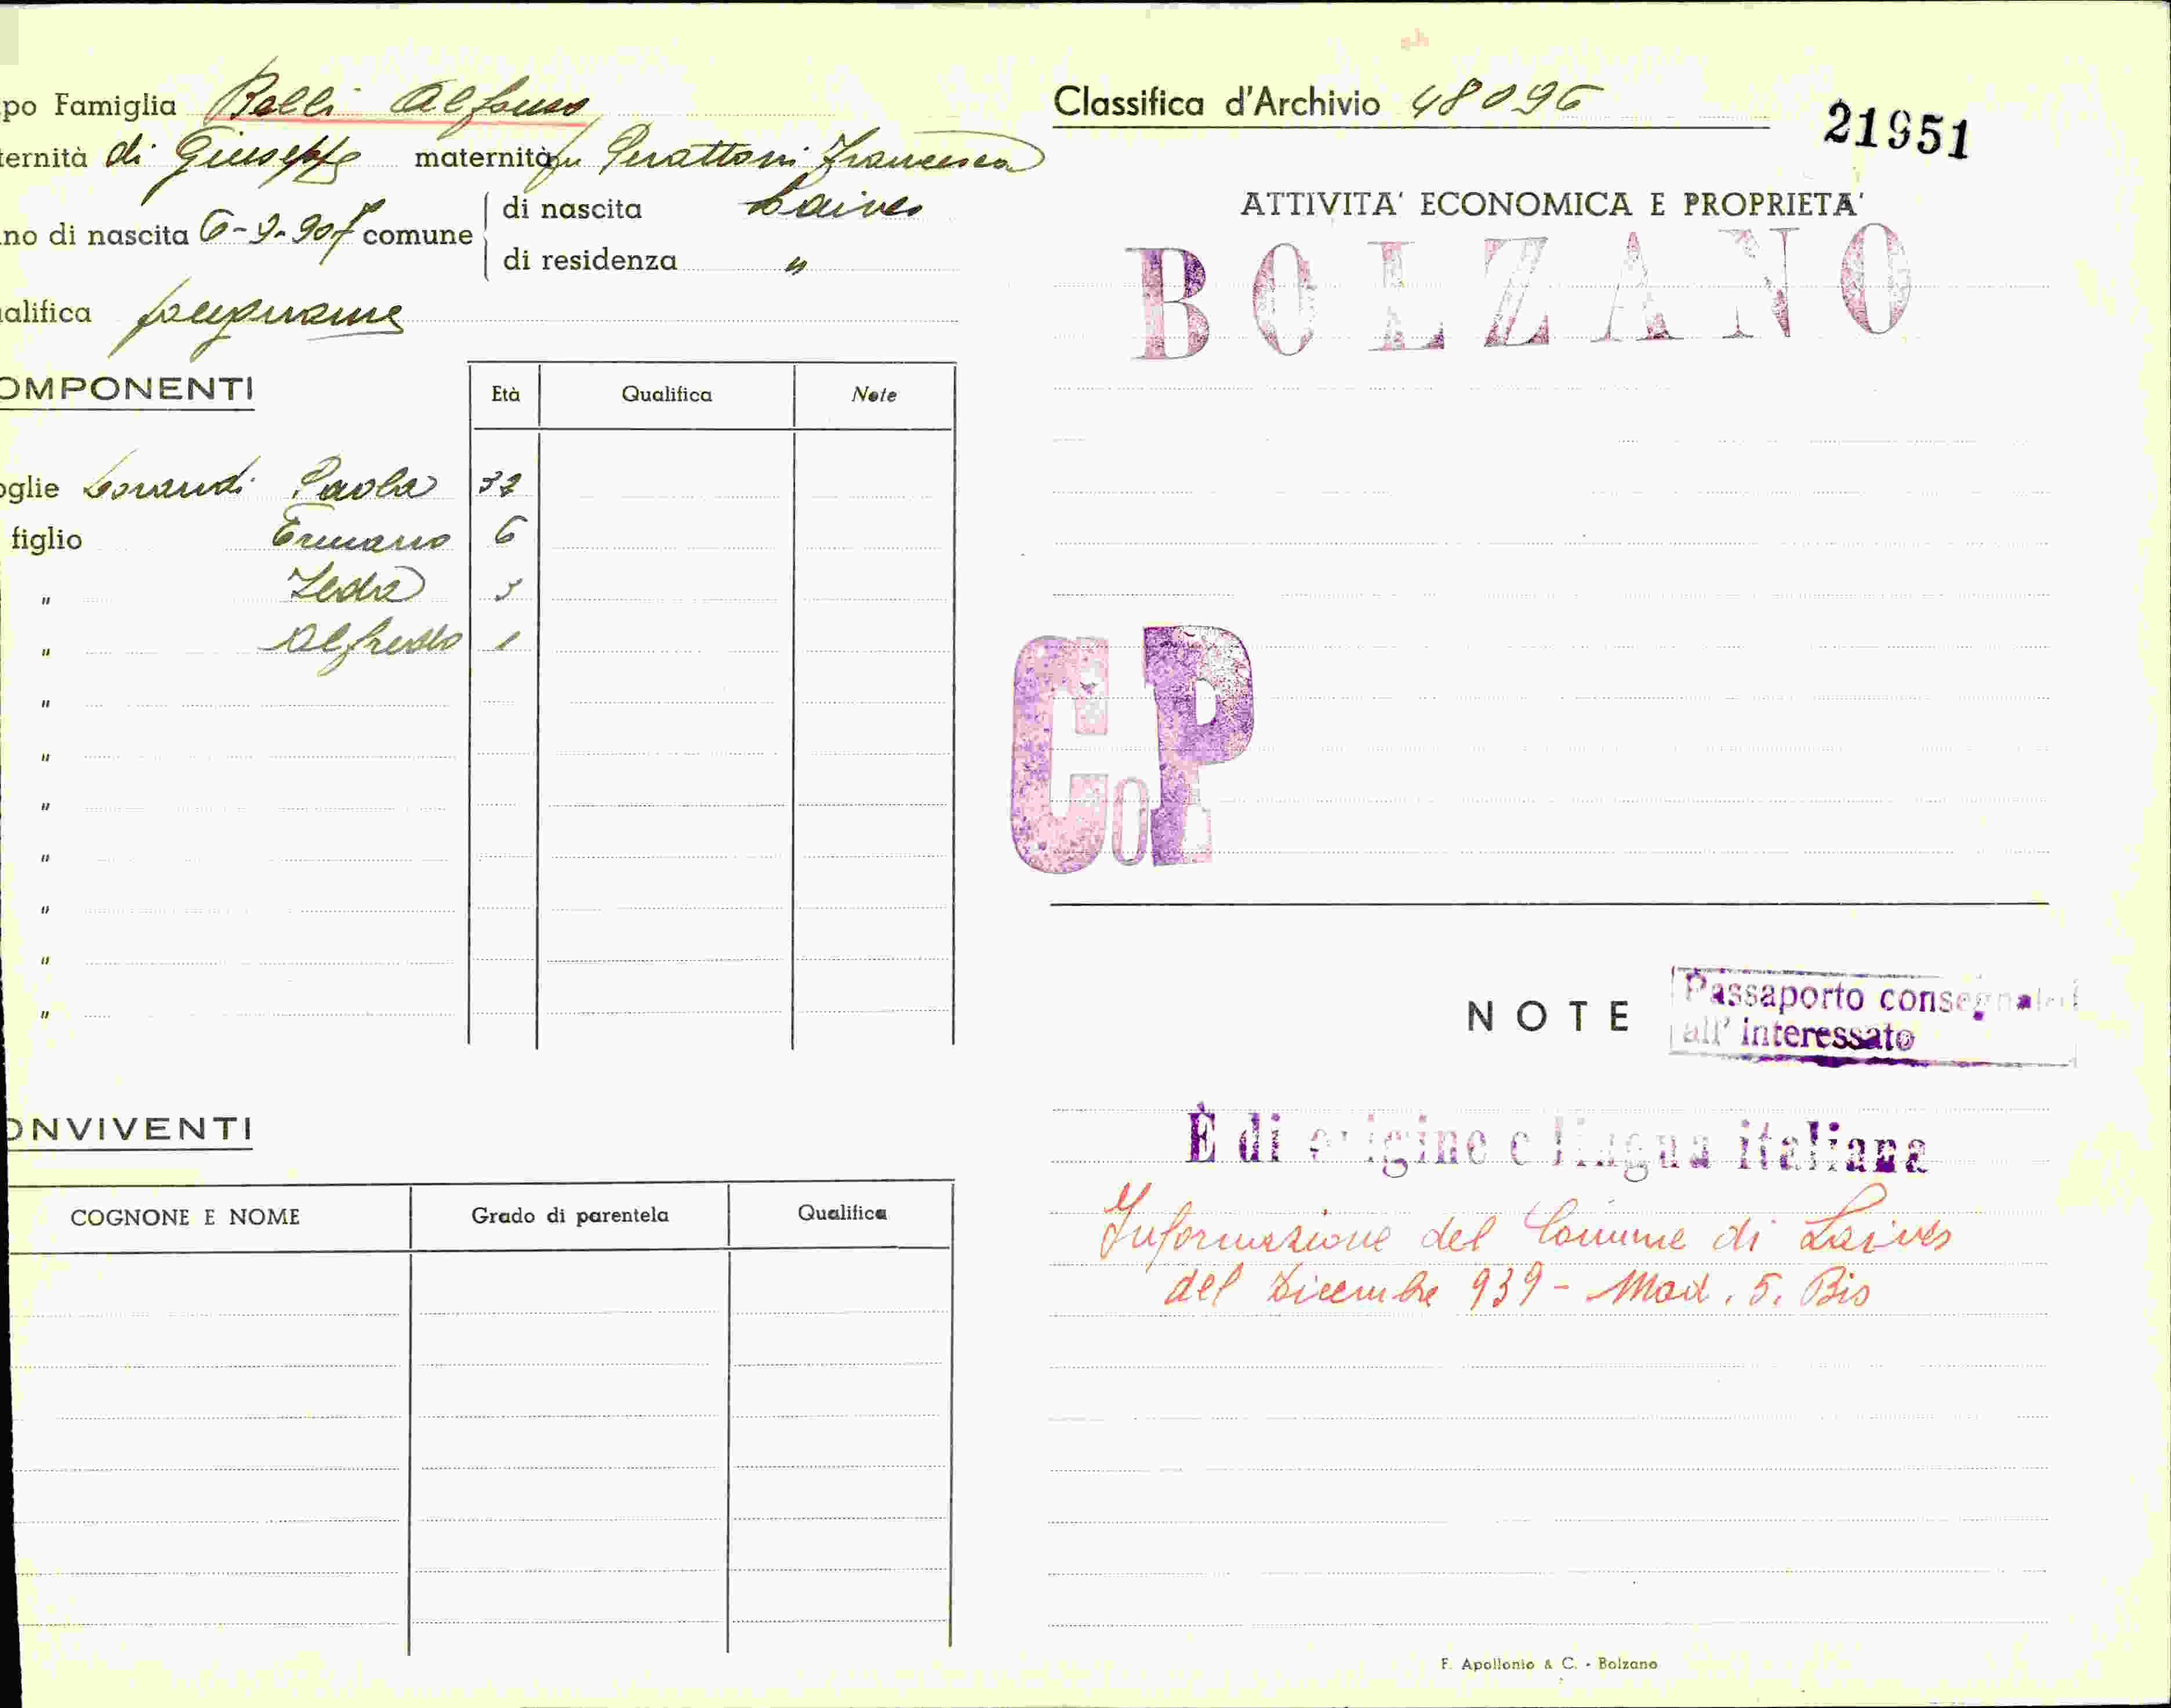 po Famiglia Pelli Alfonso
ternità di Giuseppe maternità fu Perattoni Francesca
no di nascita 6-9-907 comune
di nascita Laives
di residenza "
alifica falegname
OMPONENTI
Età Qualifica Note
oglie Lorandi Paola 32
figlio Ermanno 6
" Leda 3
" Alfredo 1
"
"
"
"
"
"
"
ONVIVENTI
COGNONE E NOME Grado di parentela Qualifica
Classifica d'Archivio 48096
21951
ATTIVITA' ECONOMICA E PROPRIETA'
BOLZANO
CoP
NOTE
Passaporto consegnato
all' interessato
È di origine e lingua italiana
Informazione del Comune di Laives
del Dicembre 939 - Mod. 5. Bis
F. Apollonio & C. - Bolzano